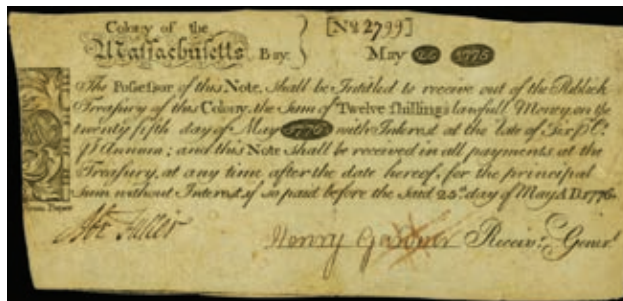 Colony of the [No. 2799]
Massachusetts Bay. May 25 1775
The Possessor of this Note, shall be Intitled to receive out of the Publick
Treasury of this Colony, the Sum of Twelve shillings lawfull Money, on the
twenty fifth day of May 1776 with Interest at the rate of Six pr. Ct.
pr. Annum; and this Note shall be received in all payments at the
Treasury, at any time after the date hereof, for the principal
Sum without Interest, if so paid before the said 25th. day of May A.D. 1776.
Abr Fuller Henry Gardner Receivr. Generl